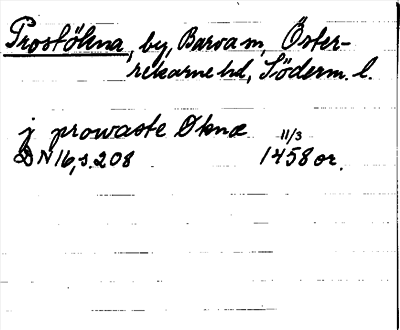 Prostökna, by, Barva sn, Öster-
rekarne hd, Söderm. l.
j prowaste Øknæ 11/3
DN 16, s. 208 1458 or.